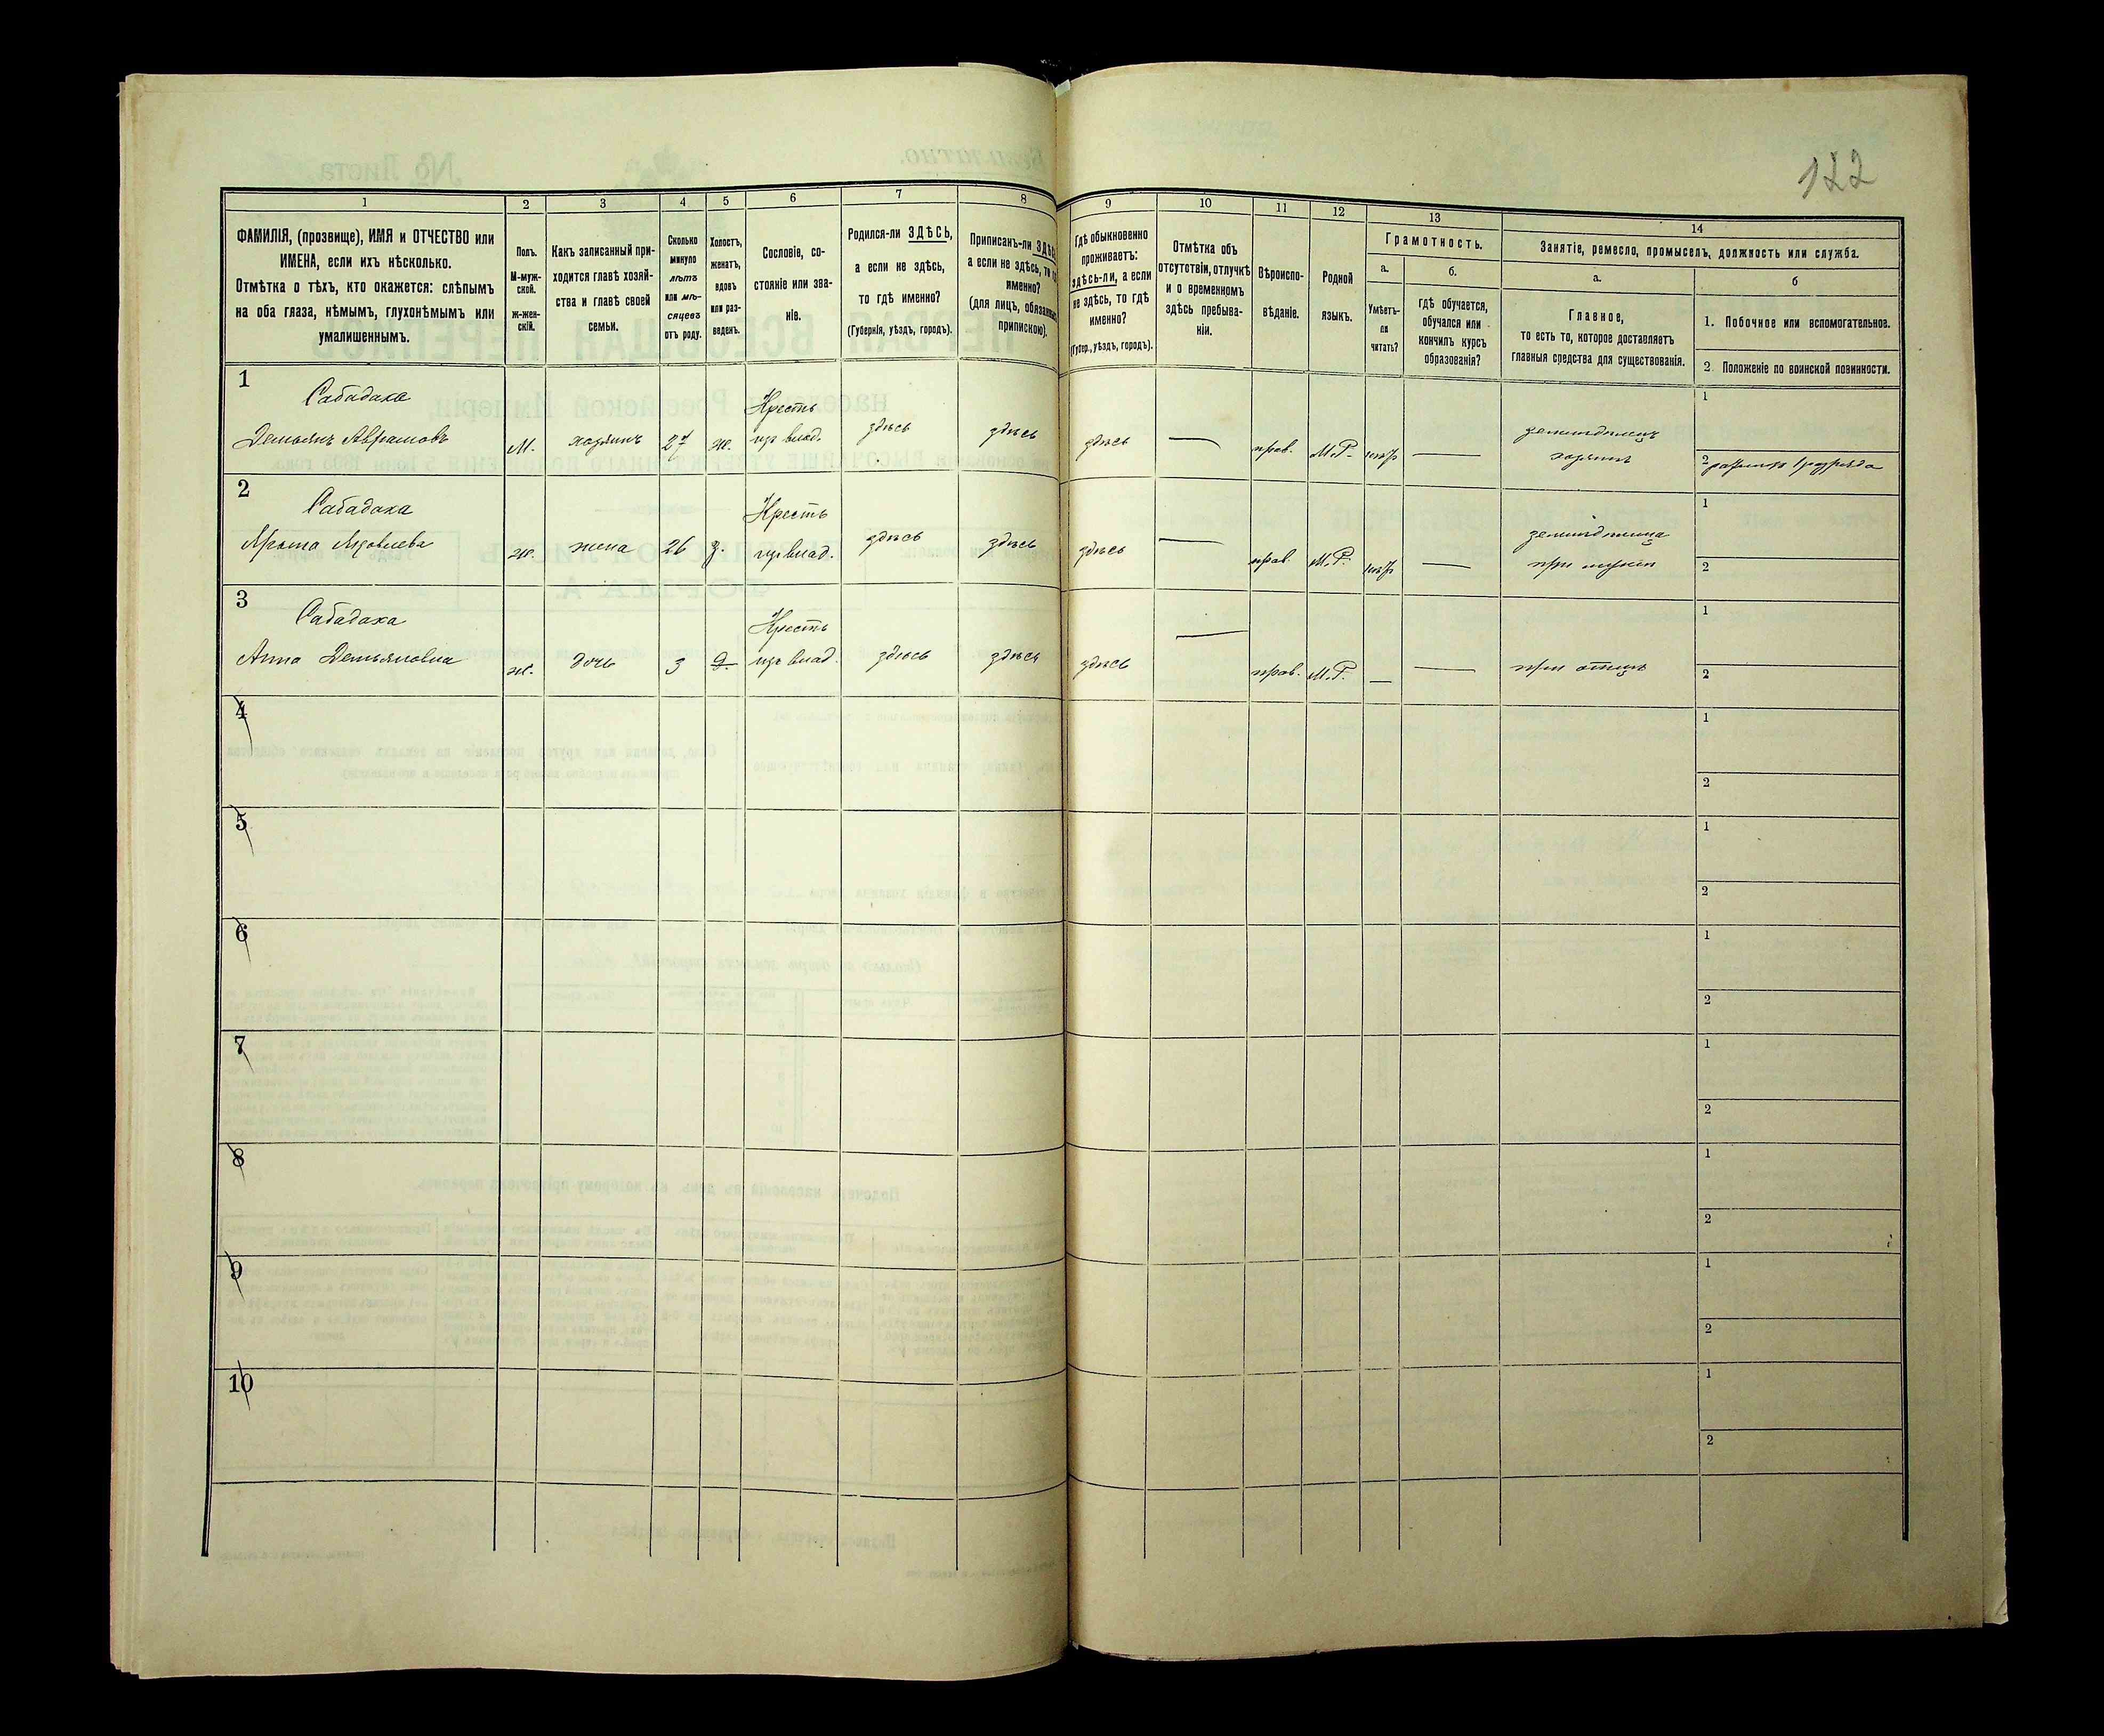 122
1 2 3 4 5 6 7 8 9 10 11 12 13 14
ФАМИЛІЯ, (прозвище), ИМЯ и ОТЧЕСТВО или
ИМЕНА, если ихъ нѣсколько.
Отмѣтка о тѣхъ, кто окажется: слѣпымъ
на оба глаза, нѣмымъ, глухонѣмымъ или
умалишеннымъ.
Полъ.
М-муж-
ской.
ж-жен-
скій.
Какъ записанный при-
ходится главѣ хозяй-
ства и главѣ своей
семьи.
Сколько
минуло
лѣтъ
или мѣ-
сяцевъ
отъ роду.
Холостъ,
женатъ,
вдовъ
или раз-
веденъ.
Сословіе, со-
стояніе или зва-
ніе.
Родился-ли ЗДѢСЬ,
а если не здѣсь,
то гдѣ именно?
(Губернія, уѣздъ, городъ).
Приписанъ-ли ЗДѢСЬ
а если не здѣсь, то
именно?
(для лицъ,
припискою).
Гдѣ обыкновенно
проживаетъ:
здѣсь-ли, а если
не здѣсь, то гдѣ
именно?
(Губер., уѣздъ, городъ).
Отмѣтка объ
отсутствіи, отлучкѣ
и о временномъ
здѣсь пребыва-
ніи.
Вѣроиспо-
вѣданіе.
Родной
языкъ.
Грамотность.
а.
Умѣетъ-
ли
читать?
б.
гдѣ обучается,
обучался или
кончилъ курсъ
образованія?
Занятіе, ремесло, промыселъ, должность или служба.
а.
Главное,
то есть то, которое доставляетъ
главныя средства для существованія.
б
1. Побочное или вспомогательное.
2. Положеніе по воинской повинности.
1 Сабадаха Кресть 1
Демьянъ Аврамовъ М. хозяинъ 27 ж. изъ влад. здѣсь здѣсь здѣсь — прав. М.Р. нѣтъ — земледѣлецъ
хозяинъ 2 ратникъ 1 разряда
2 Сабадаха Кресть 1
Яковлева ж. жена 26 з. изъ влад. здѣсь здѣсь здѣсь — прав. М.Р. нѣтъ — земледѣлица
при мужѣ 2
3 Сабадаха Кресть 1
Анна Демьяновна ж. дочь 3 д. изъ влад. здѣсь здѣсь здѣсь — прав. М.Р. — — при отцѣ 2
4 1
2
5 1
2
6 1
2
7 1
2
8 1
2
9 1
2
10 1
2